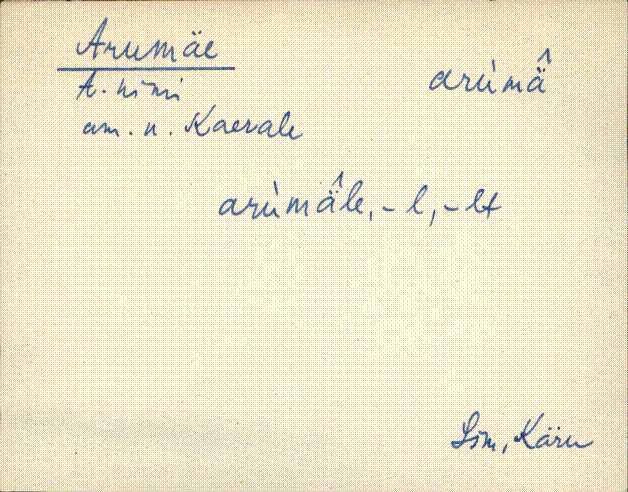 Arumäe
t. nimi
am. n. Kaerale
arùmä̂
arùmä̂le, -l, -lt
Sim, Käru